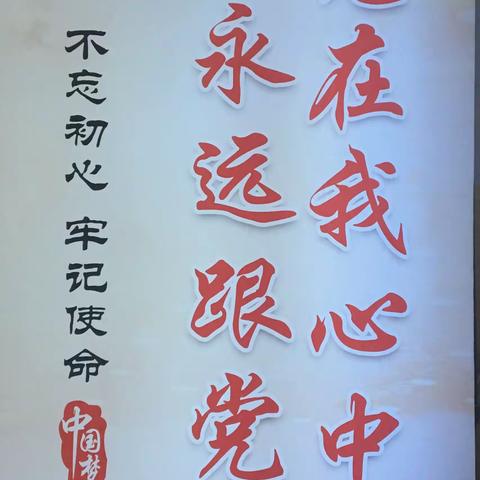 在我心中
永远跟党
不忘初心 牢记使命
中国梦